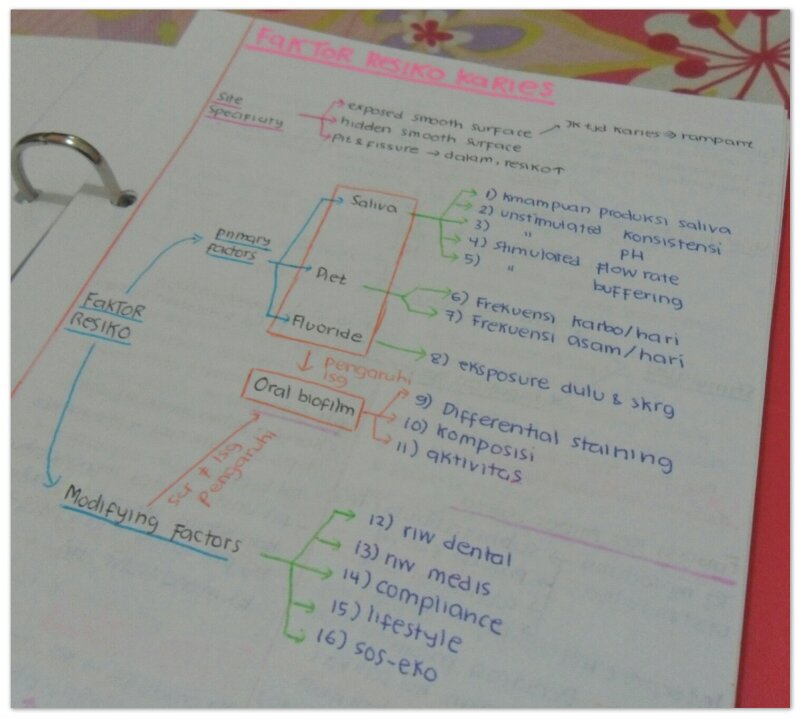 FAKTOR RESIKO KARIES
Site
Specificity
exposed smooth surface
hidden smooth surface
pit & fissure → dalam, resiko↑
Jk tjd karies ⇒ rampant
primary
Factors
Saliva
Diet
Fluoride
1) kmampuan produksi saliva
2) unstimulated konsistensi
3) " pH
4) stimulated flow rate
5) " buffering
6) Frekuensi karbo/hari
7) Frekuensi asam/hari
8) eksposure dulu & skrg
FAKTOR
RESIKO
pengaruhi
lsg
Oral biofilm
9) Differential staining
10) komposisi
11) aktivitas
scr t lsg
pengaruhi
Modifying Factors
12) riw dental
13) riw medis
14) compliance
15) lifestyle
16) sos-eko